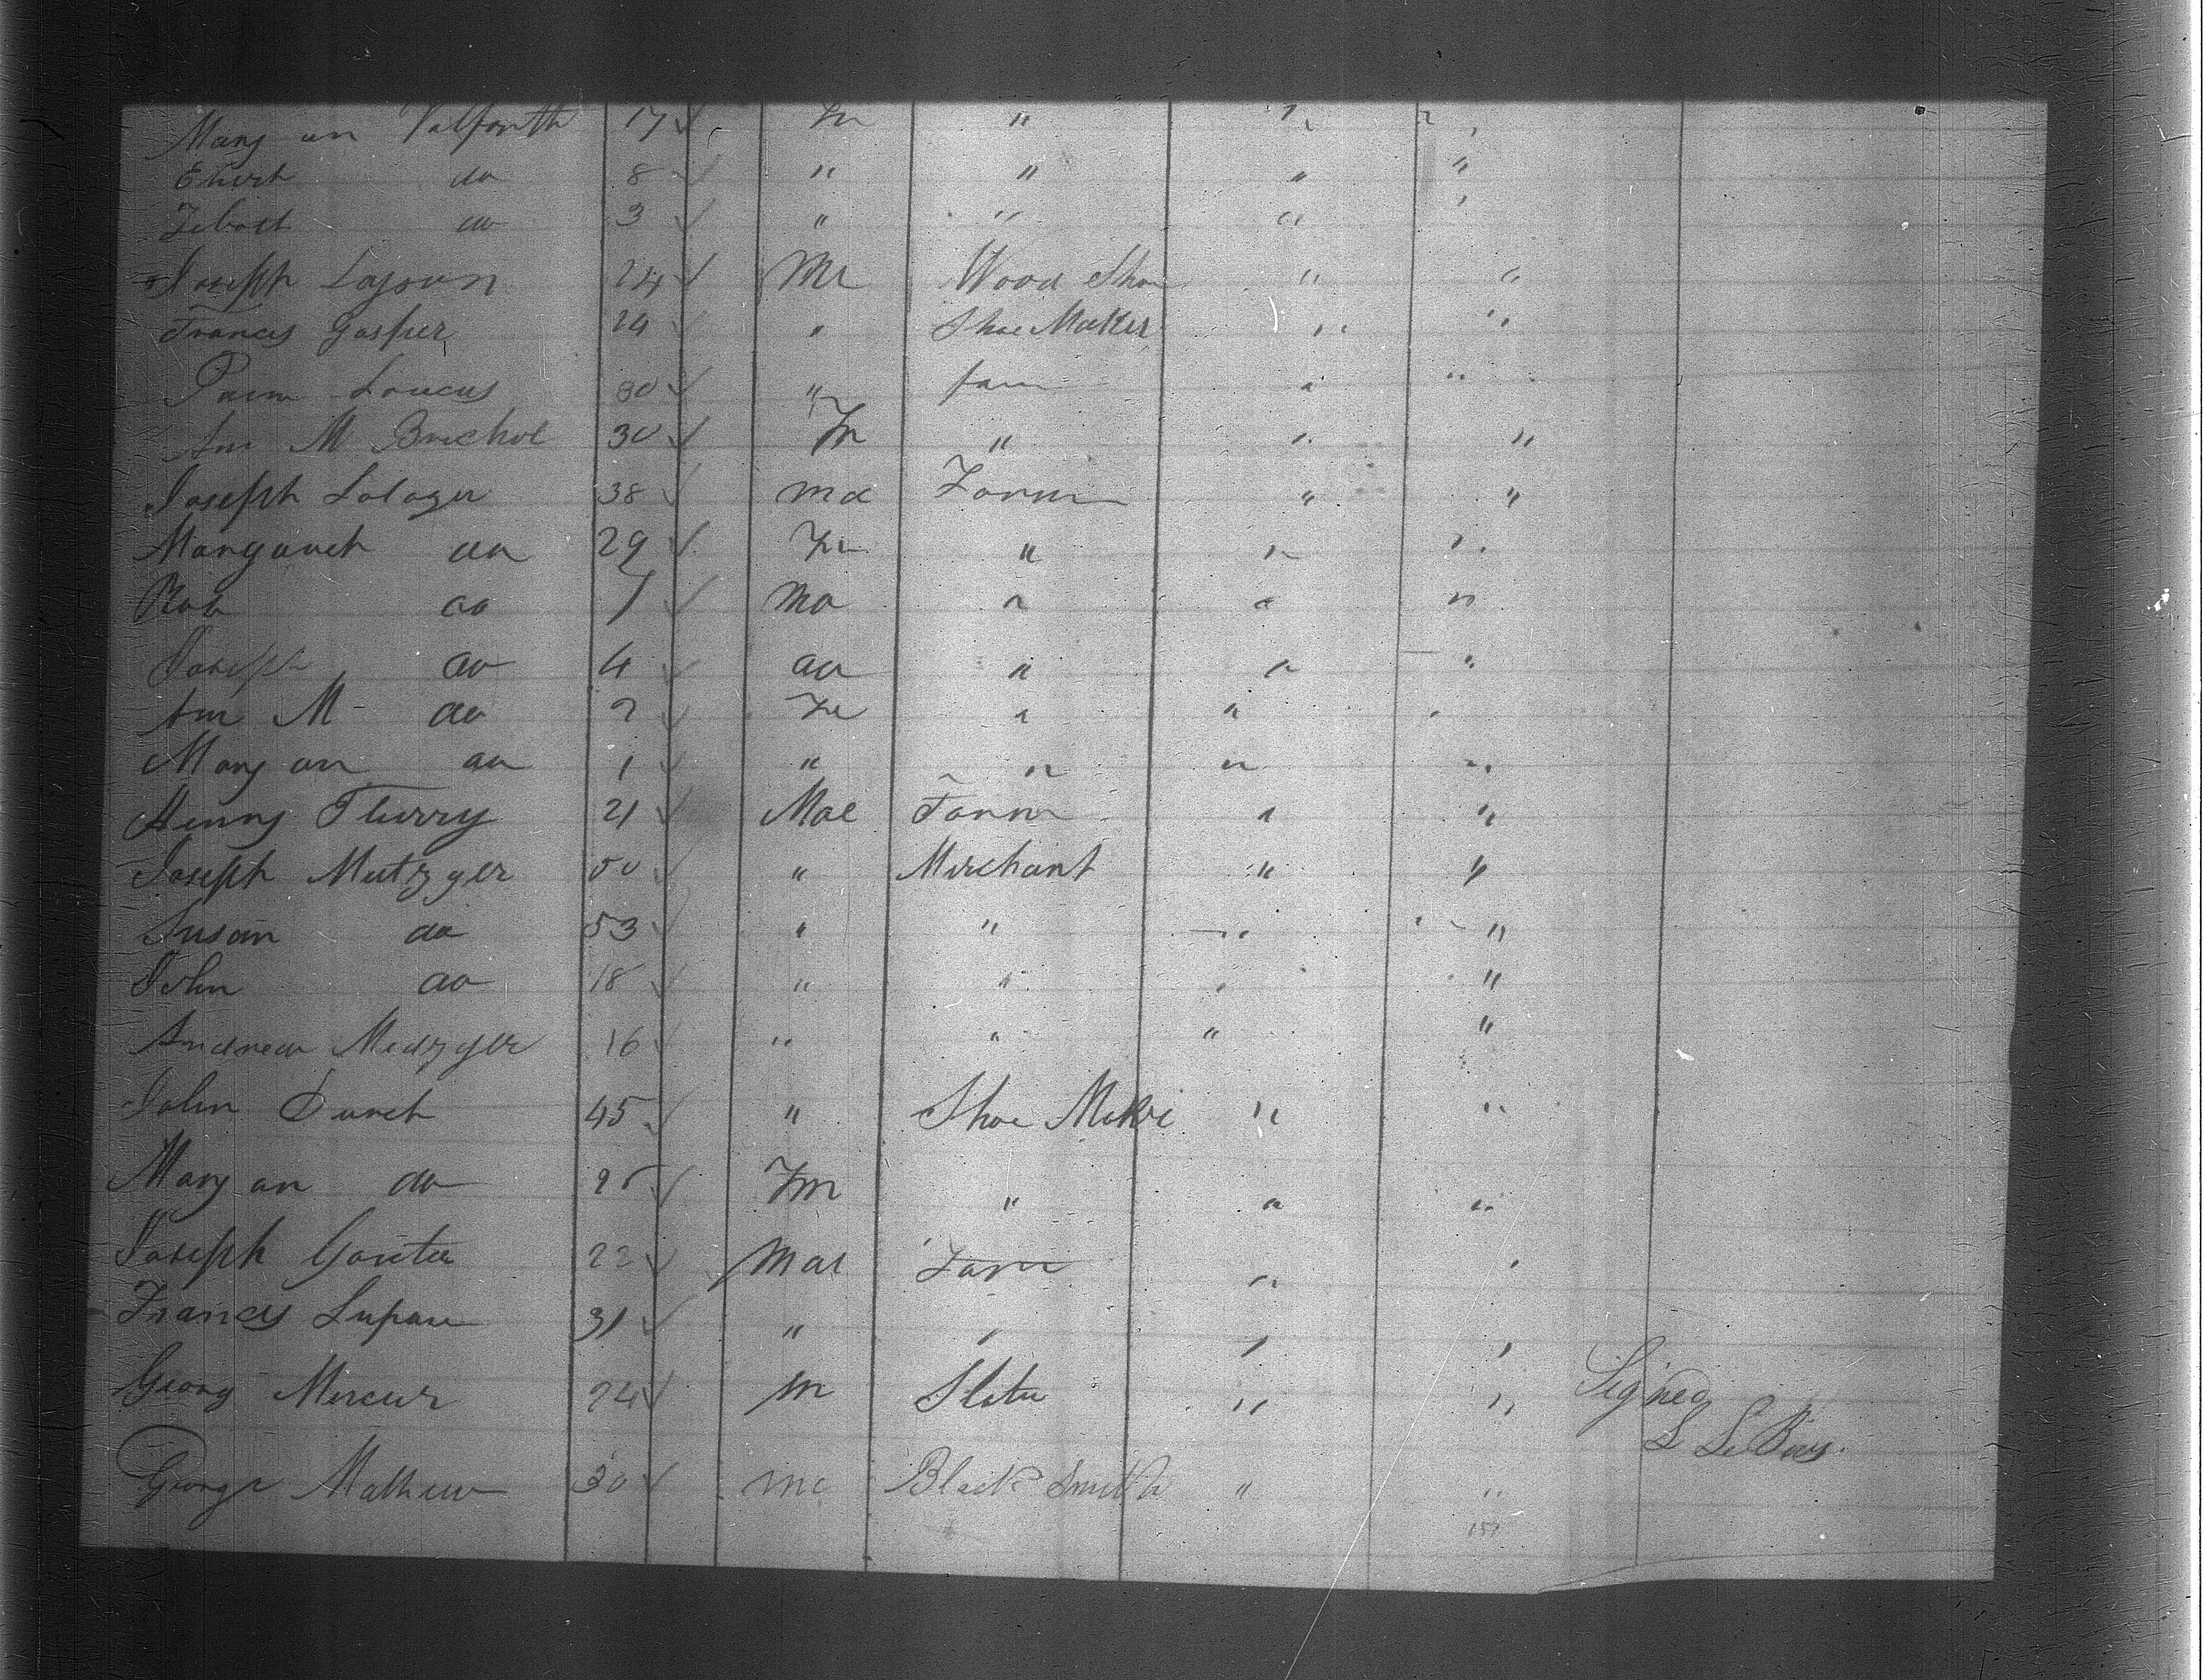 Mary an Valfonth 17 ✓ Fm " " "
Ehirt do 8 ✓ " " " "
Zebott do 3 ✓ " " " "
Joseph Lajoun 24 ✓ Ml Wood Shoe " "
Francis Gasper 24 ✓ " Shoe Maker " "
Loucus 30 ✓ " farm " "
An M Brichol 30 ✓ Fm " " "
Joseph Lalozer 38 ✓ ma Farm " "
Margaret do 29 ✓ Fe " " "
do 7 ✓ Ma " " "
Joseph do 4 ✓ do " " "
An M do 2 ✓ Fe " " "
Mary an do 1 ✓ " " " "
Henry Thirry 21 ✓ Mal Farm " "
Joseph Mutzger 50 ✓ " Merchant " "
Susan do 53 ✓ " " " "
John do 18 ✓ " " " "
Andrew Medzger 16 ✓ " " " "
John Durch 45 ✓ " Shoe Maker " "
Mary an do 25 ✓ Fm " " "
Joseph Gouter 22 ✓ Mal Farm " "
Francis Lupau 31 ✓ " " " "
Georg Mercur 24 ✓ m Slater " "
Signed
L LeBois.
George Mathew 30 ✓ me Black Smith " "
151